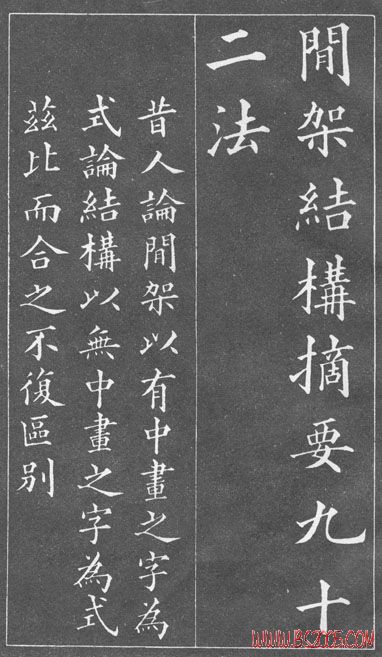 閒架結構摘要九十
二法
昔人論閒架以有中畫之字為
式論結構以無中畫之字為式
茲比而合之不復區别
WWW.BCZJ05.COM